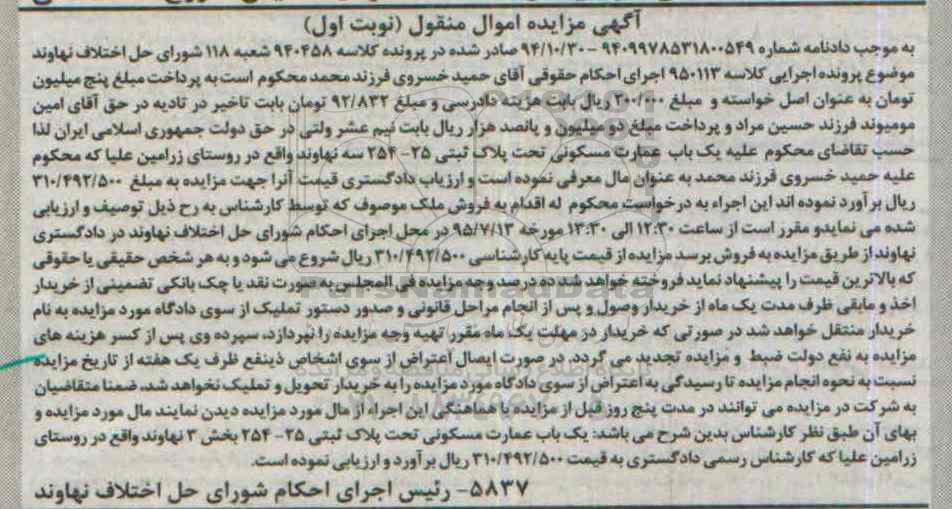 آگهی مزایده اموال منقول (نوبت اول)
به موجب دادنامه شماره ۹۴۰۹۹۷۸۵۳۱۸۰۰۵۴۹ -۹۴/۱۰/۳۰ صادر شده در پرونده کلاسه ۹۴۰۴۵۸ شعبه ۱۱۸ شورای حل اختلاف نهاوند
موضوع پرونده اجرایی کلاسه ۹۵۰۱۱۳ اجرای احکام حقوقی آقای حمید خسروی فرزند محمد محکوم است به پرداخت مبلغ پنج میلیون
تومان به عنوان اصل خواسته و مبلغ ۲۰۰/۰۰۰ ریال بابت هزینه دادرسی و مبلغ ۹۲/۸۳۲ تومان بابت تاخیر در تادیه در حق آقای امین
مومیوند فرزند حسین مراد و پرداخت مبلغ دو میلیون و پانصد هزار ریال بابت نیم عشر ولتی در حق دولت جمهوری اسلامی ایران لذا
حسب تقاضای محکوم علیه یک باب عمارت مسکونی تحت پلاک ثبتی ۲۵- ۲۵۴ سه نهاوند واقع در روستای زرامین علیا که محکوم
علیه حمید خسروی فرزند محمد به عنوان مال معرفی نموده است و ارزیاب دادگستری قیمت آنرا جهت مزایده به مبلغ ۳۱۰/۴۹۲/۵۰۰
ریال برآورد نموده اند این اجراء به درخواست محکوم له اقدام به فروش ملک موصوف که توسط کارشناس به رح ذیل توصیف و ارزیابی
شده می نمایدو مقرر است از ساعت ۱۲:۳۰ الی ۱۳:۳۰ مورخه ۹۵/۷/۱۳ در محل اجرای احکام شورای حل اختلاف نهاوند در دادگستری
نهاوند از طریق مزایده به فروش برسد مزایده از قیمت پایه کارشناسی ۳۱۰/۴۹۲/۵۰۰ ریال شروع می شود و به هر شخص حقیقی یا حقوقی
که بالاترین قیمت را پیشنهاد نماید فروخته خواهد شد ده درصد وجه مزایده فی المجلس به صورت نقد یا چک بانکی تضمینی از خریدار
اخذ و مابقی ظرف مدت یک ماه از خریدار وصول و پس از انجام مراحل قانونی و صدور دستور تملیک از سوی دادگاه مورد مزایده به نام
خریدار منتقل خواهد شد در صورتی که خریدار در مهلت یک ماه مقرر تهیه وجه مزایده را نپردازد، سپرده وی پس از کسر هزینه های
مزایده به نفع دولت ضبط و مزایده تجدید می گردد. در صورت ایصال اعتراض از سوی اشخاص ذینفع ظرف یک هفته از تاریخ مزایده
نسبت به نحوه انجام مزایده تا رسیدگی به اعتراض از سوی دادگاه مورد مزایده را به خریدار تحویل و تملیک نخواهد شد. ضمنا متقاضیان
به شرکت در مزایده می توانند در مدت پنج روز قبل از مزایده با هماهنگی این اجراء از مال مورد مزایده دیدن نمایند مال مورد مزایده و
بهای آن طبق نظر کارشناس بدین شرح می باشد: یک باب عمارت مسکونی تحت پلاک ثبتی ۲۵- ۲۵۴ بخش ۳ نهاوند واقع در روستای
زرامین علیا که کارشناس رسمی دادگستری به قیمت ۳۱۰/۴۹۲/۵۰۰ ریال برآورد و ارزیابی نموده است.
۵۸۳۷- رئیس اجرای احکام شورای حل اختلاف نهاوند